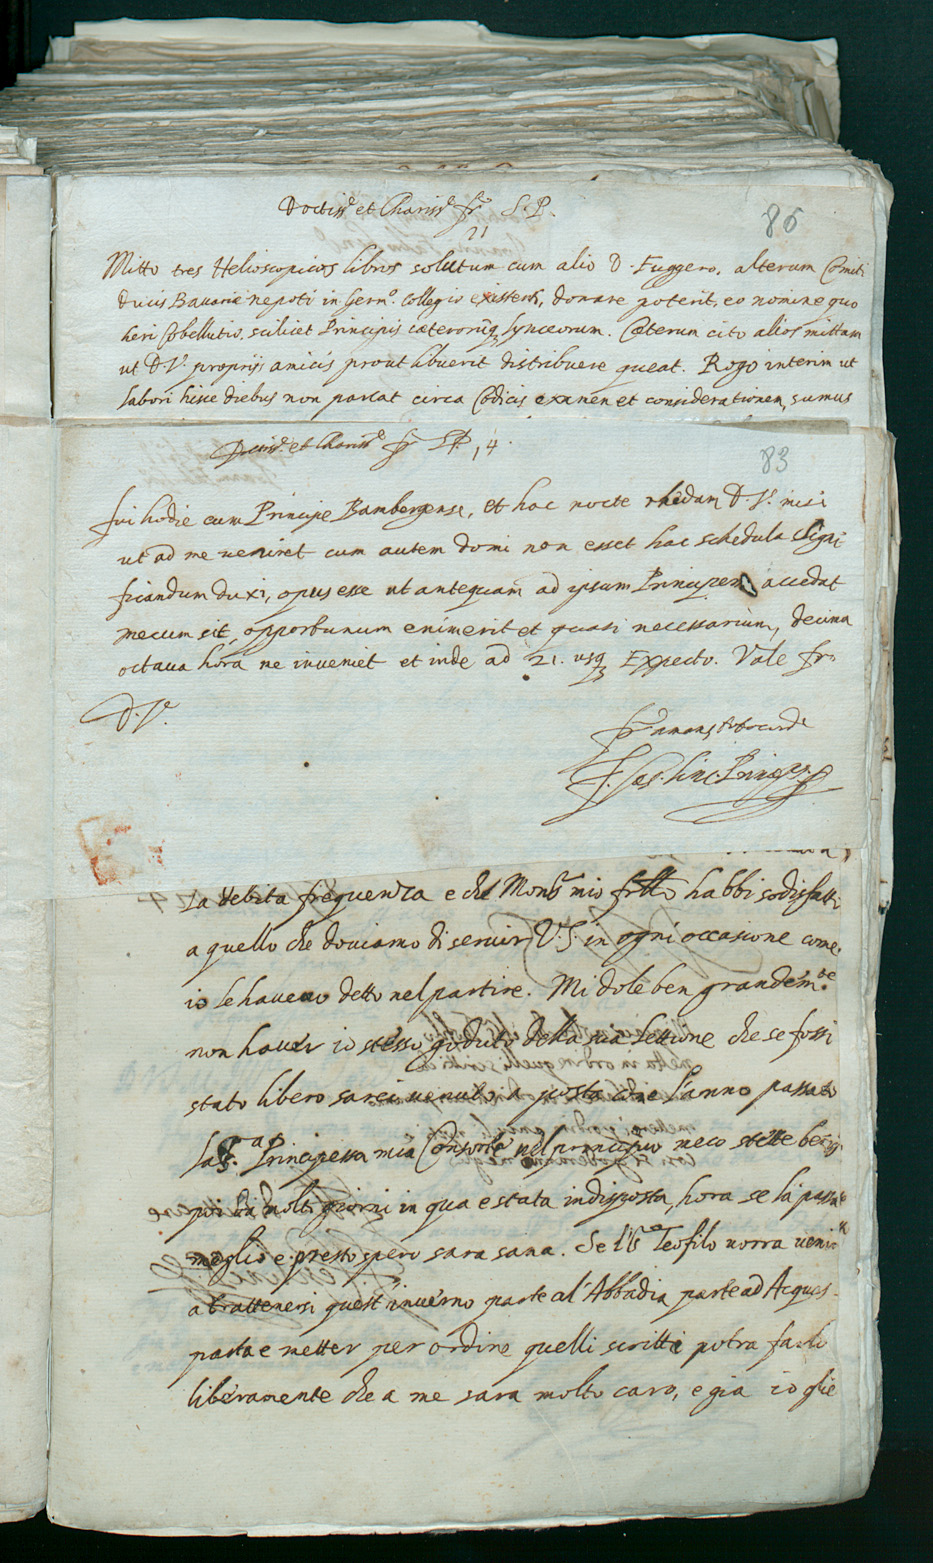 Doctiss.e et Chariss.e fr. S. P.
21
86
Mitto tres Helioscopicos libros solutum cum alio D. Fuggero, alterum Comiti
Ducis Bavariæ nepoti in Germ.o Collegio existenti, donare poterit, eo nomine quo
heri Cobellutio, scilicet Principis cæterorūq; Lynceorum. Cæterum cito alios mittam
ut D. V. proprijs amicis prout libuerit distribuere queat. Rogo interim ut
labori hisce diebus non parcat circa Codicis examen et considerationem, sumus
Dociss.e et Chariss.e fr. S.P. 14.
83
fui hodie cum Principe Bambergense, et hac nocte rhedam D. V. misi
ut ad me veniret cum autem domi non esset hac schedula signi
ficandum duxi, opus esse ut antequam ad ipsum Principem accedat
mecum sit, opportunum enim erit et quasi necessarium, decima
octava hora me inveniet et inde ad 21. usq; Expecto. Vale fr.
D. V.
fr. amans
F. Cæs. Linc. Princeps
la debita frequenza e che Mons.r mio frllo habbi sodisfatto
a quello che doviamo di servir V.S. in ogni occasione come
io le havevo detto nel partire. Mi dole ben grandem.te
non haver io stesso goduto della sua lettione che se fossi
stato libero sarei venuto a posta come l'anno passato
la S.ra Principessa mia Consorte nel principio meco stette bene
poi da molti giorni in qua e stata indisposta, hora se la passa
meglio e presto spero sara sana. Se il S.r Teofilo vorra venir
a trattenersi quest'inverno parte al'Abbadia parte ad Acquas-
parta e metter per ordine quelli scritti potra farlo
liberamente che a me sara molto caro, e gia io glie